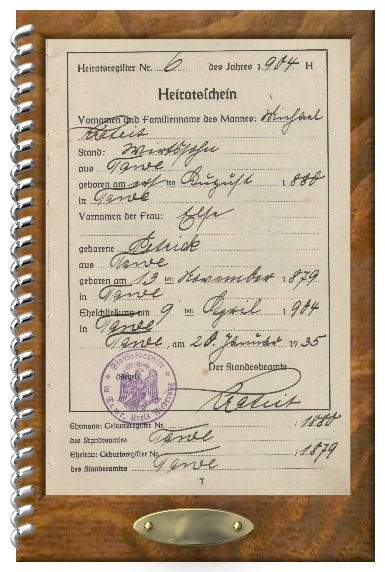 Heiratsregister Nr. 6 des Jahres 1904 H
Heiratsschein
Vornamen und Familienname des Mannes: Michael
Kateit
Stand: Wirtssohn
aus Tawe
geboren am ten August 1880
in Tawe
Vornamen der Frau: Else
geborene Petrick
aus Tawe
geboren am 13 ten November 1879
in Tawe
Eheschließung am 9 ten April 1904
in Tawe
Tawe, am 20. Januar 1935
Der Standesbeamte
(Siegel)
Standesbeamter
Kreis
Kateit
Ehemann: Geburtsregister Nr. : 1880
des Standesamtes Tawe
Ehefrau: Geburtsregister Nr. : 1879
des Standesamtes Tawe
7